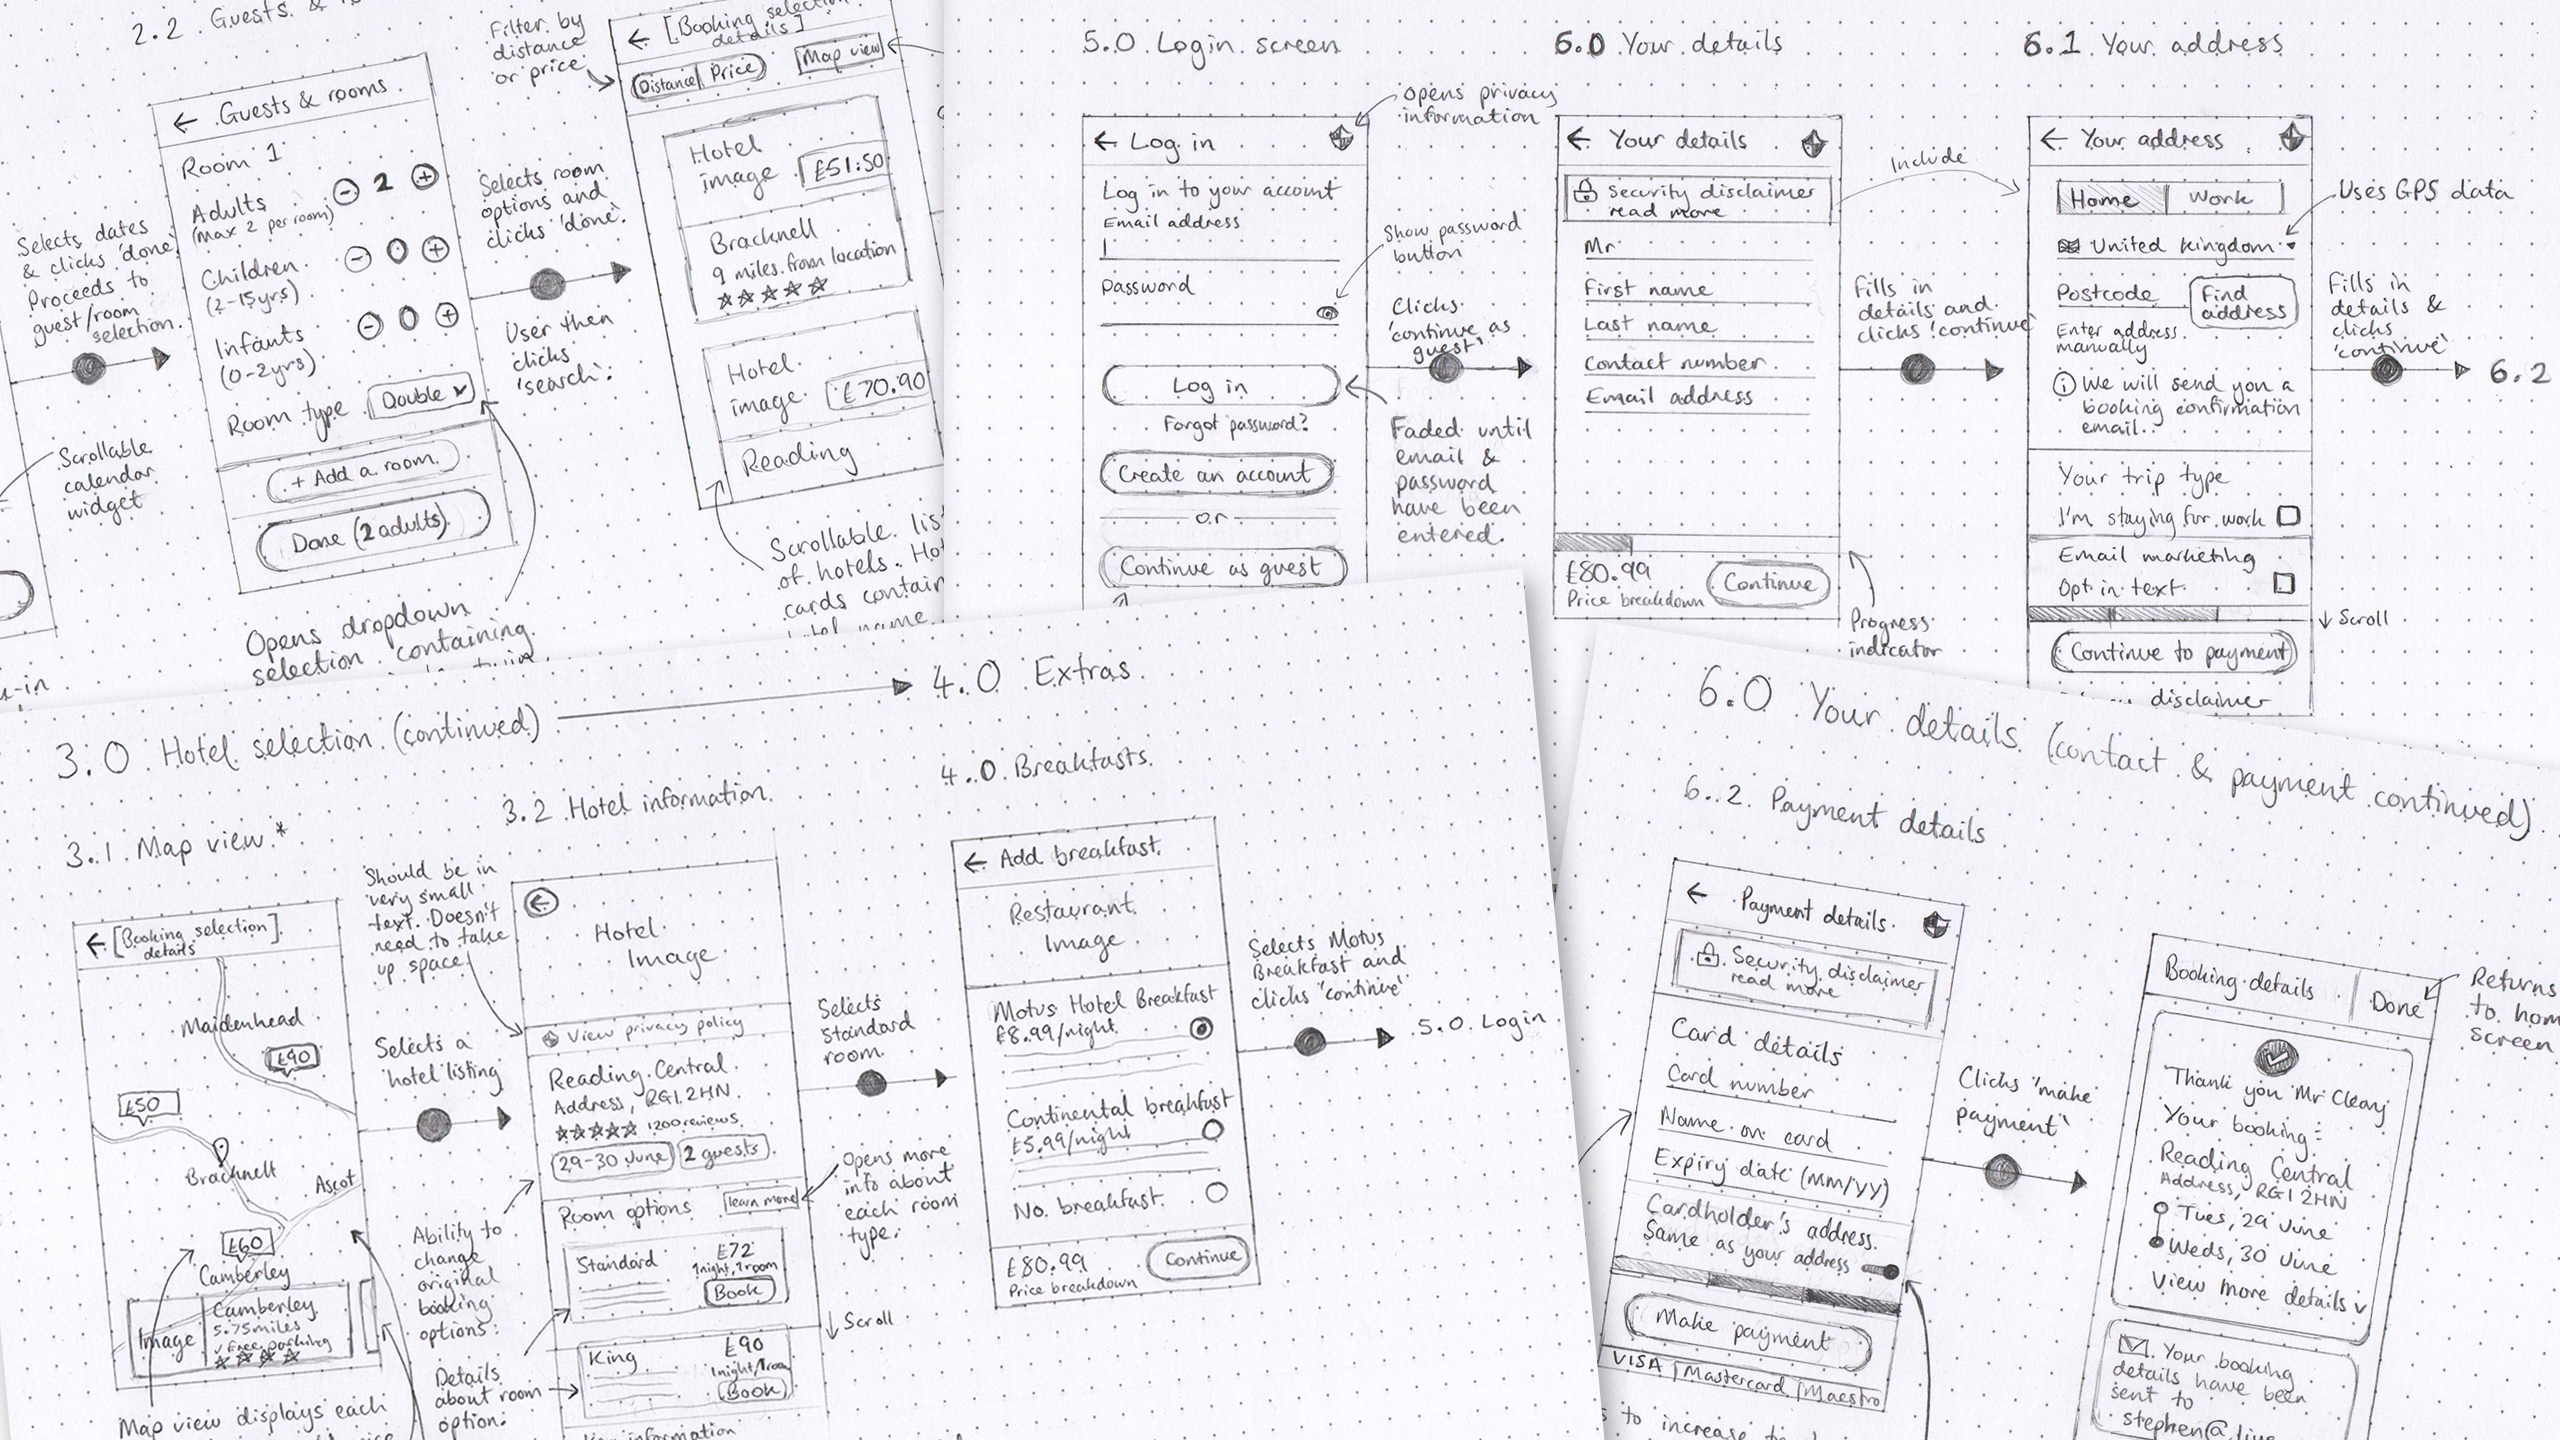 2.2 Guests &
← Guests & rooms
Room 1
Adults
(max 2 per room)
- 2 +
Children
(2-15yrs)
- 0 +
Infants
(0-2yrs)
- 0 +
Room type
Double
+ Add a room
Done (2 adults)
Selects dates
& clicks 'done'
Proceeds to
guest/room
selection.
Scrollable
calendar
widget
Opens dropdown
selection containing
Selects room
options and
clicks 'done'.
User then
clicks
'search'.
Filter by
distance
or price
← [Booking selection
details]
Distance
Price
Map view
Hotel
image
£51.50
Bracknell
9 miles from location
Hotel
image
£70.90
Reading
Scrollable list
of hotels.
cards contain
5.0 Login screen
← Log in
Log in to your account
Email address
Password
Log in
Forgot password?
Create an account
or
Continue as guest
Opens privacy
information
Show password
button
Clicks
'continue as
guest'
Faded until
email &
password
have been
entered.
6.0 Your details
← Your details
Security disclaimer
read more
Mr
First name
Last name
Contact number
Email address
£80.99
Price breakdown
Continue
Include
Fills in
details and
clicks 'continue'
Progress
indicator
6.1 Your address
← Your address
Home
Work
United kingdom
Postcode
Find
address
Enter address
manually
i We will send you a
booking confirmation
email.
Your trip type
I'm staying for work
Email marketing
Opt in text
Continue to payment
disclaimer
Uses GPS data
Fills in
details &
clicks
'continue'
6.2
↓ Scroll
3.0 Hotel selection (continued)
4.0 Extras
3.1 Map view *
← [Booking selection]
details
Maidenhead
£90
£50
Bracknell
Ascot
£60
Camberley
Image
Camberley
5.75miles
✓ Free parking
Map view displays each
Should be in
very small
text. Doesn't
need to take
up space.
Selects a
hotel listing
Ability to
change
original
booking
options.
Details
about room
option.
3.2 Hotel information
←
Hotel
Image
View privacy policy
Reading Central
Address, RG1 2HN
1200 reviews
29-30 June
2 guests
Room options
learn more
Standard
£72
1night, 1room
Book
King
£90
1night/1room
Book
information
Selects
Standard
room
Opens more
info about
each room
type.
↓ Scroll
4.0 Breakfasts
← Add breakfast
Restaurant
Image
Motus Hotel Breakfast
£8.99/night
Continental breakfast
£5.99/night
No breakfast
£80.99
Price breakdown
Continue
Selects Motus
Breakfast and
clicks 'continue'
5.0 Login
6.0 Your details (contact & payment continued)
6.2 Payment details
← Payment details
Security disclaimer
read more
Card details
Card number
Name on card
Expiry date (MM/YY)
Cardholder's address
Same as your address
Make payment
VISA | Mastercard | Maestro
to increase
Clicks 'make
payment'
Booking details
Done
Returns
to home
screen
Thank you Mr Cleary
Your booking:
Reading Central
Address, RG1 2HN
Tues, 29 June
Weds, 30 June
View more details
Your booking
details have been
sent to
stephen@live